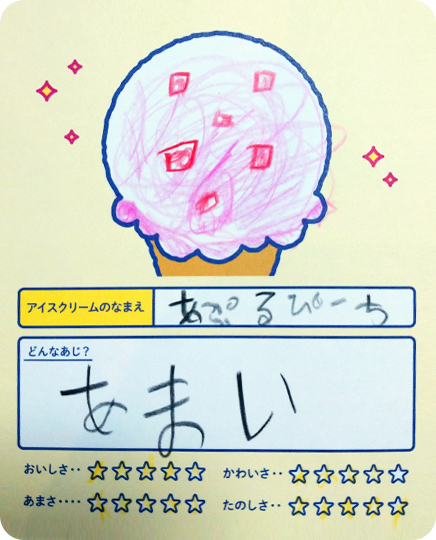 アイスクリームのなまえ あぷるぴーち
どんなあじ？
あまい
おいしさ‥ ☆☆☆☆☆ かわいさ‥ ☆☆☆☆☆
あまさ‥‥ ☆☆☆☆☆ たのしさ‥ ☆☆☆☆☆